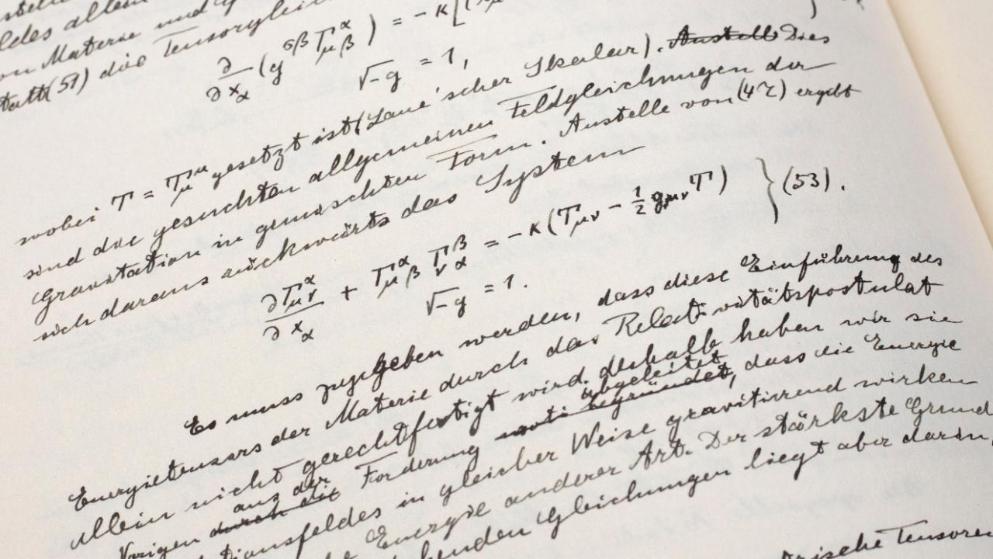 von Materie und
(51) die Tensorgleich
∂/∂x_α (g^{σβ} Γ^α_{μβ}) = −κ[(T
√−g = 1,
wobei T = T^μ_μ gesetzt ist (Laue'scher Skalar). Anstelle Dies
sind die gesuchten allgemeinen Feldgleichungen der
Gravitation in gemischter Form. Anstelle von (47) ergibt
sich daraus rückwärts das System
∂Γ^α_{μν}/∂x_α + Γ^α_{μβ} Γ^β_{να} = −κ(T_{μν} − 1/2 g_{μν} T) } (53).
√−g = 1.
Es muss zugegeben werden, dass diese Einführung des
Energietensors der Materie durch das Relativitätspostulat
allein nicht gerechtfertigt wird. deshalb haben wir sie
aus der abgeleitet
Vorigen durch die Forderung begründet, dass die Energie
in gleicher Weise gravitierend wirken
Energie anderer Art. Der stärkste Grund
Gleichungen liegt aber darin,
Tensoren